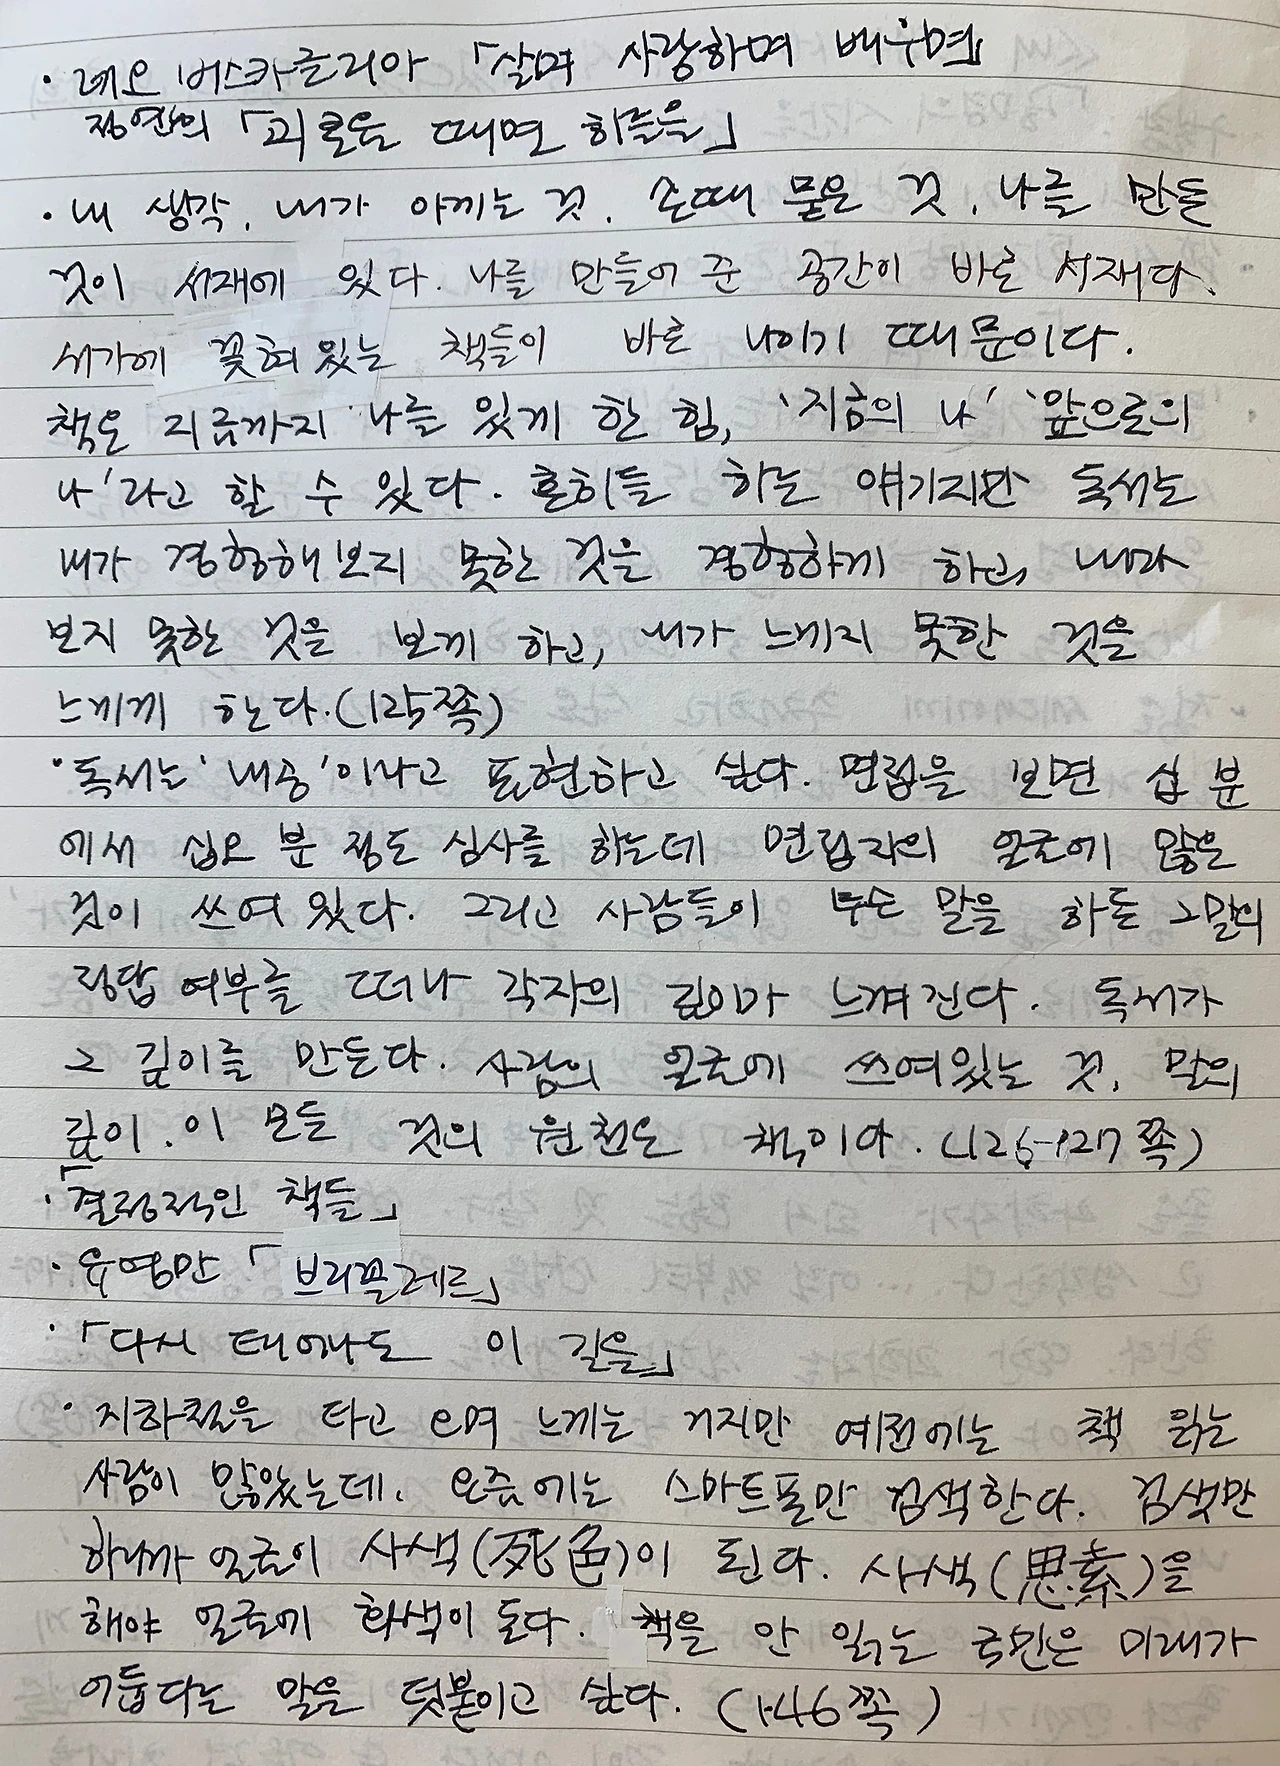 · 레오 버스카글리아 「살며 사랑하며 배우며」
정연의 「괴로울 때면 하늘을」
· 내 생각, 내가 아끼는 것, 손때 묻은 것, 나를 만든
것이 서재에 있다. 나를 만들어 준 공간이 바로 서재다.
서가에 꽂혀 있는 책들이 바로 나이기 때문이다.
책은 지금까지 나를 있게 한 힘, '지금의 나' '앞으로의
나'라고 할 수 있다. 흔히들 하는 얘기지만 독서는
내가 경험해 보지 못한 것을 경험하게 하고, 내가
보지 못한 것을 보게 하고, 내가 느끼지 못한 것을
느끼게 한다.(125쪽)
· 독서는 '내공'이라고 표현하고 싶다. 면접을 보면 십 분
에서 십오 분 정도 심사를 하는데 면접자의 얼굴에 많은
것이 쓰여 있다. 그리고 사람들이 무슨 말을 하든 그 말의
정답 여부를 떠나 각자의 깊이가 느껴진다. 독서가
그 깊이를 만든다. 사람의 얼굴에 쓰여있는 것, 말의
깊이, 이 모든 것의 원천은 책이다. (126-127쪽)
· 「결정적인 책들」
· 유영만 「브리꼴레르」
· 「다시 태어나도 이 길을」
· 지하철을 타고 오며 느끼는 거지만 예전에는 책 읽는
사람이 많았는데, 요즘에는 스마트폰만 검색한다. 검색만
하니까 얼굴이 사색(死色)이 된다. 사색(思索)을
해야 얼굴에 화색이 돈다. 책을 안 읽는 국민은 미래가
어둡다는 말을 덧붙이고 싶다. (146쪽)